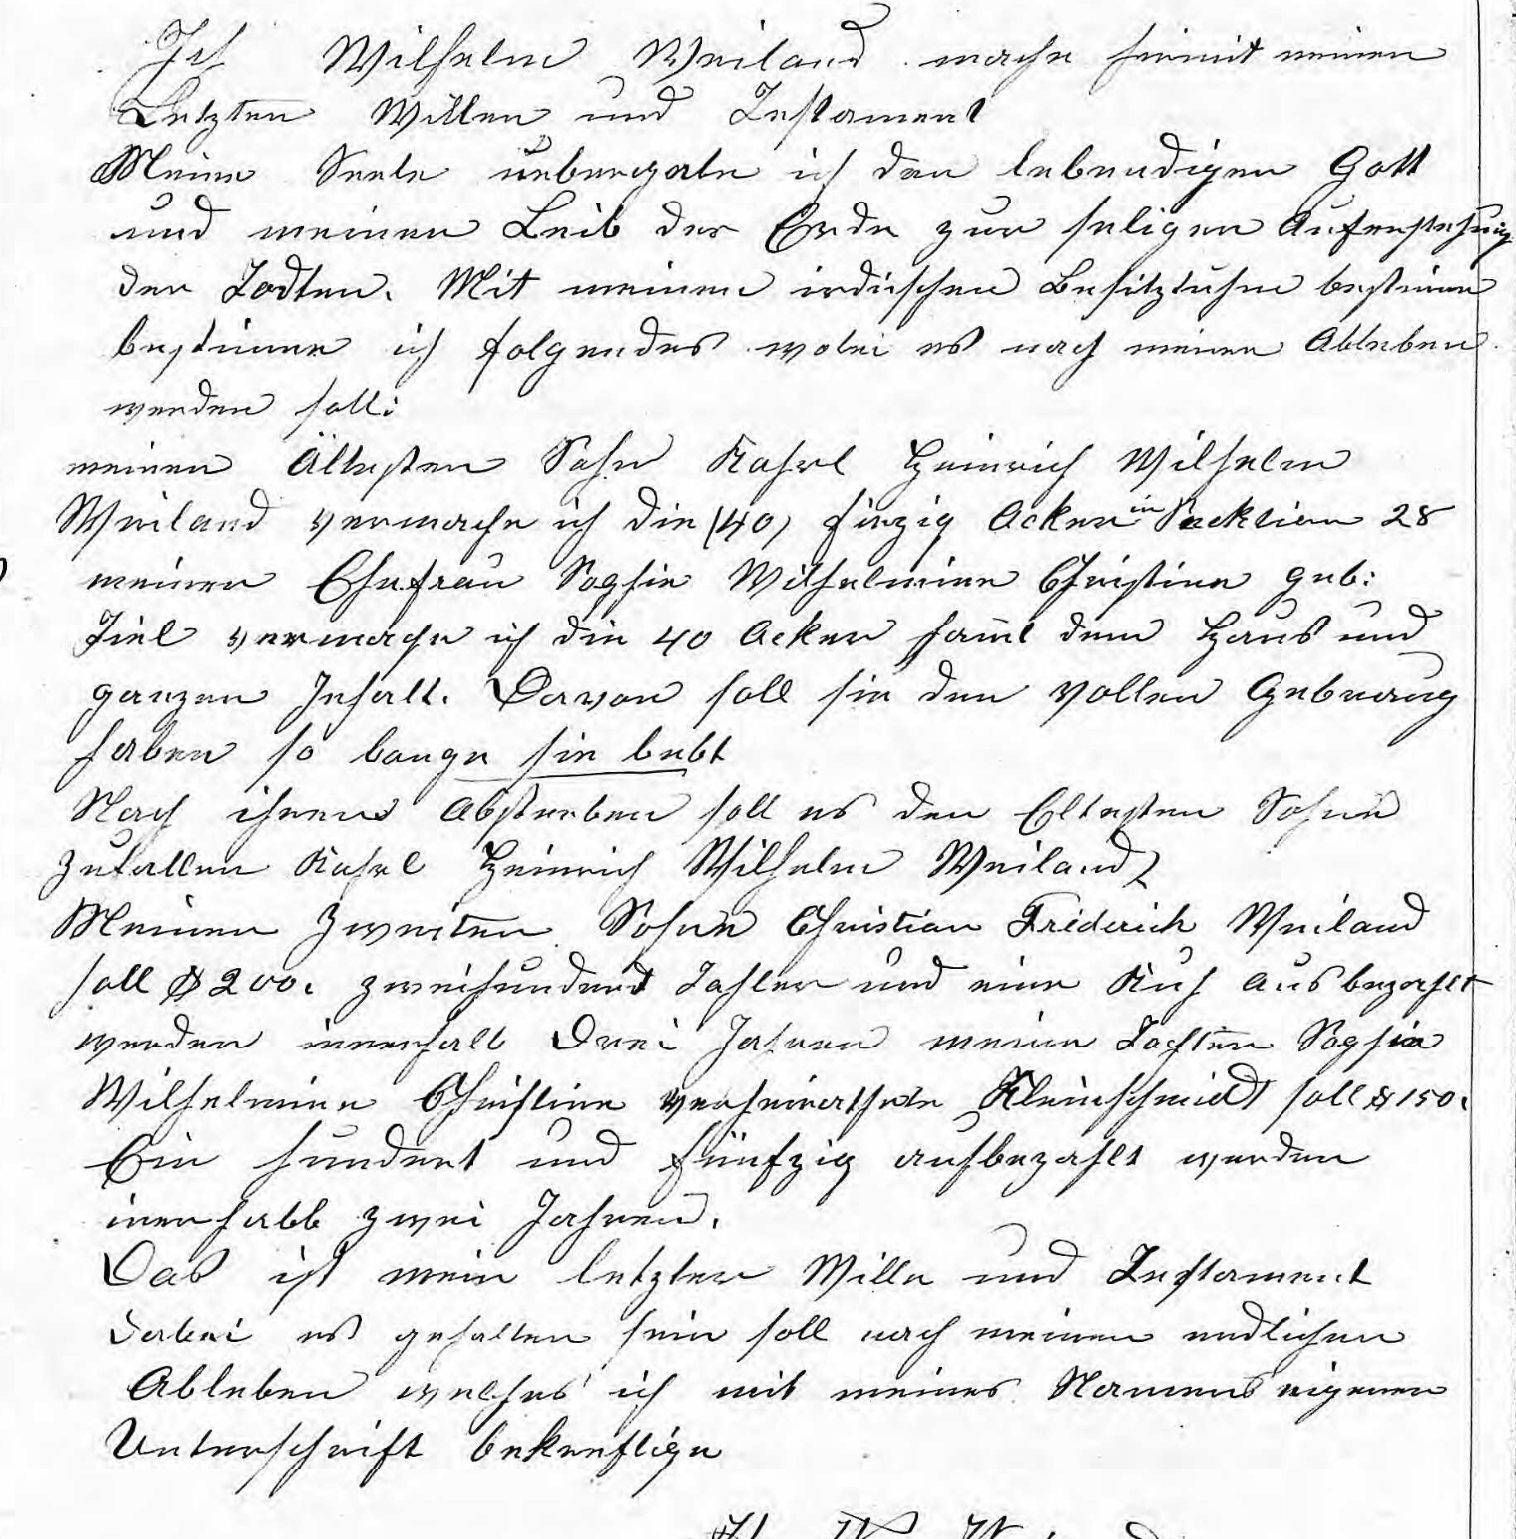 Ich Wilhelm Weiland mache hiermit meinen
Letzten Willen und Testament
Meine Seele uebergebe ich den lebendigen Gott
und meinen Leib der Erde zur seligen Auferstehung
der Todten. Mit meinen irdischen Besitzthum bestimme
bestimme ich folgendes wobei es nach meinen Ableben
werden soll:
meinen Ältesten Sohn Kahrl Heinrich Wilhelm
Weiland vermache ich die (40) firzig Acker in Secktion 28
meinen Ehefrau Sophie Wilhelmine Christine geb:
Tiel vermache ich die 40 Acker samt dem Haus und
ganzen Inhalt. Davon soll sie den vollen Gebrauch
haben so lange sie lebt
Nach ihrem Absterben soll es den Eltesten Sohne
zufallen Kahrl Heinrich Wilhelm Weiland
Meinen Zweiten Sohne Christian Friderich Weiland
soll $200. zweihundert Tahler und eine Kuh ausbezahlt
werden innerhalb Drei Jahren meine Tochter Sophia
Wilhelmine Christine verheirathete Kleinschmidt soll $150.
Ein hundert und fünfzig aufbezahlt werden
inerhalb zwei Jahren.
Das ist mein letzter Wille und Testament
dabei es gehalten sein soll nach meinen endlichen
Ableben welches ich mit meines Namens eigenen
Unterschrift bekreftige